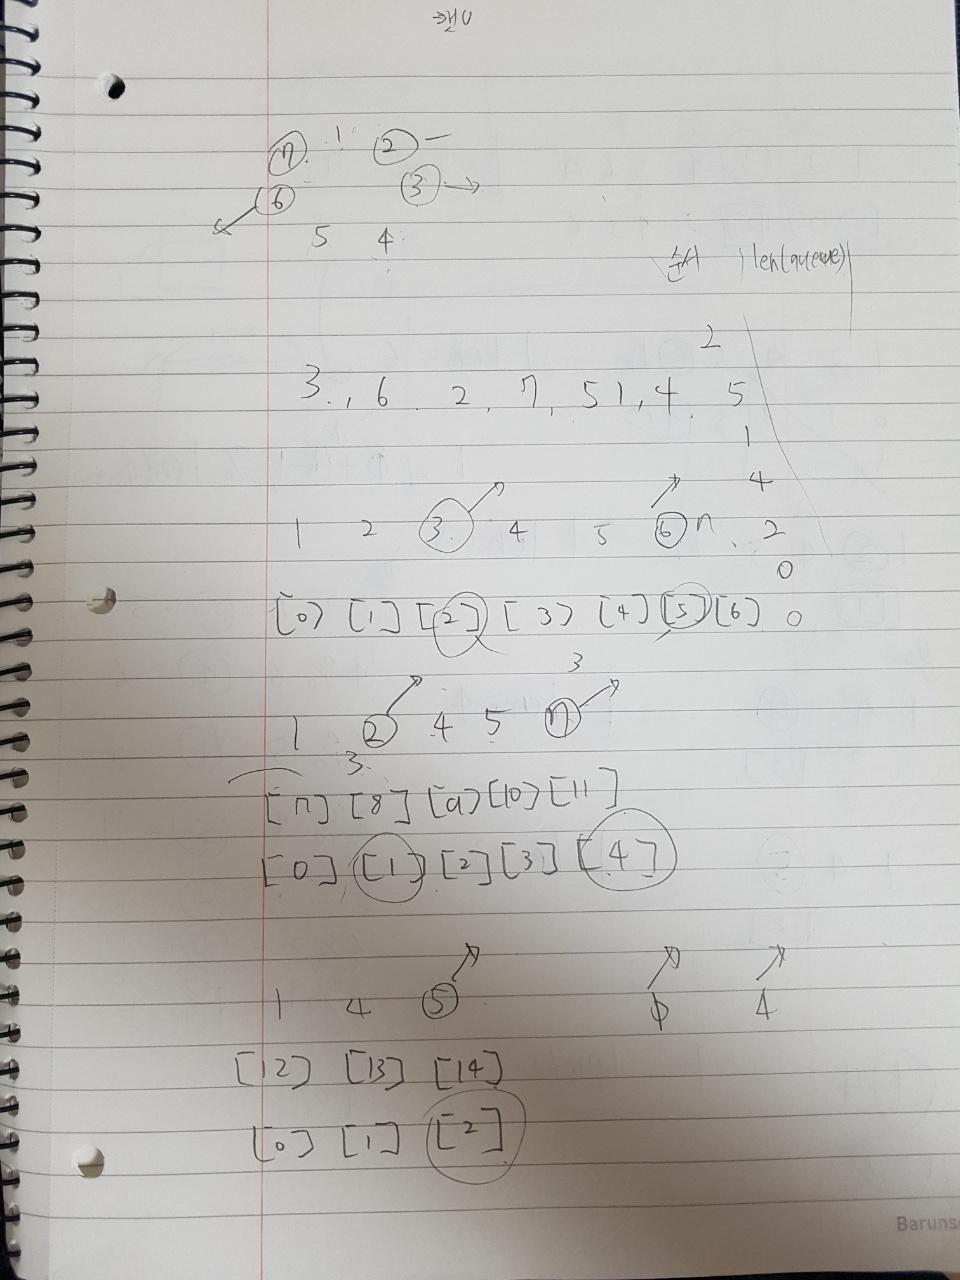 7 1 2
6 3
5 4
순서 len(queue)
2
3, 6 2, 7, 5 1, 4 5
1
4
1 2 3 4 5 6 7 2
0
[0] [1] [2] [3] [4] [5] [6] 0
3
1 2 4 5 7
3
[7] [8] [9] [10] [11]
[0] [1] [2] [3] [4]
1 4 5 1 4
[12] [13] [14]
[0] [1] [2]